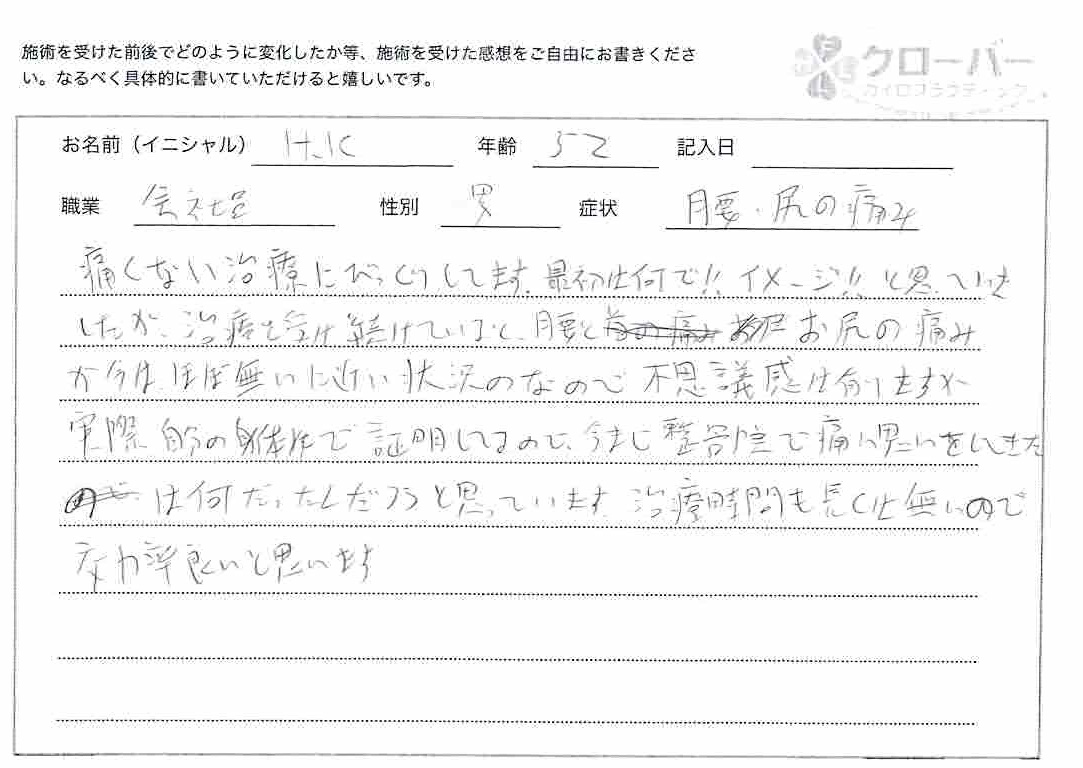 施術を受けた前後でどのように変化したか等、施術を受けた感想をご自由にお書きくださ
い。なるべく具体的に書いていただけると嬉しいです。
クローバー
カイロプラクティック
お名前（イニシャル） H.K 年齢 52 記入日
職業 会社員 性別 男 症状 腰・尻の痛み
痛くない治療にびっくりしてます。最初は何で!! イメージ!! と思っていま
したが、治療を受け続けていると、腰と お尻の痛み
が今は、ほぼ無いに近い状況のなので不思議感は有りますが
実際自分の身体で証明してるので、今まで整骨院で痛い思いをしてきた
のは何だったんだろうと思っています。治療時間も長くは無いので
効率良いと思います